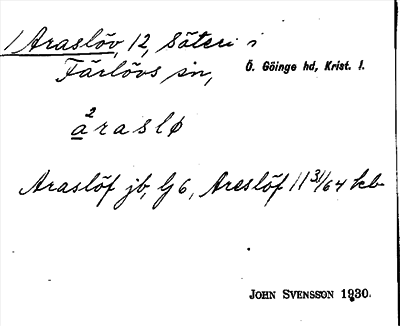 1 Araslöv, 12, Säteri i
Färlövs sn, Ö. Göinge hd, Krist. l.
2
araslø
Araslöf jb, Lj 6, Areslöf 11 31/64 kb
JOHN SVENSSON 1930.